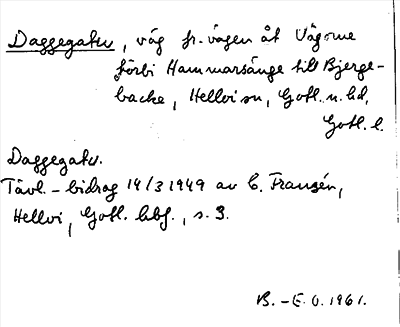 Daggegatu, väg fr. vägen åt Vägome
förbi Hammarsänge till Bjerge-
backe, Hellvi sn, Gotl. n. hd,
Gotl. l.
Daggegatu.
Tävl.-bidrag 14/3 1949 av C. Franzén,
Hellvi, Gotl. bbf., s. 3.
B.-E. O. 1961.